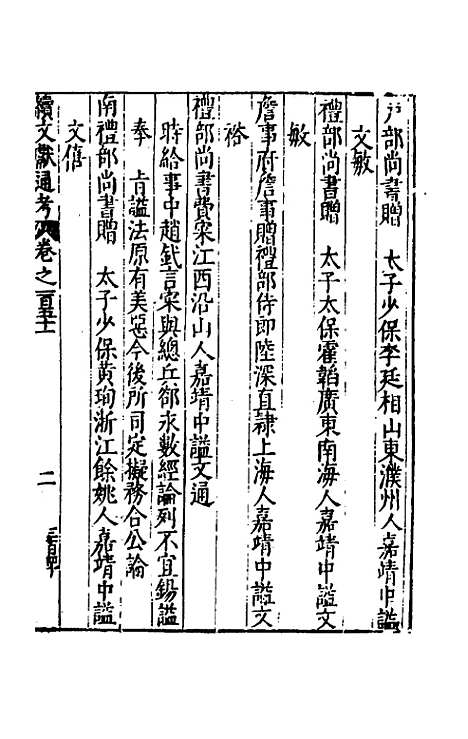 戸部尚書贈　太子少保李廷相山東濮州人嘉靖中謚
文敏
禮部尚書贈　太子太保霍韜廣東南海人嘉靖中謚文
敏
詹事府詹事贈禮部侍郎陸深直隷上海人嘉靖中謚文
裕
禮部尚書費寀江西沿山人嘉靖中謚文通
時給事中趙釴言寀與總丘郤永數經論列不宜錫謚
奉　旨謚法原有美惡今後所司定擬務合公論
南禮部尚書贈　太子少保黄珣浙江餘姚人嘉靖中謚
文僖
續文獻通考　卷之一百五十一
二